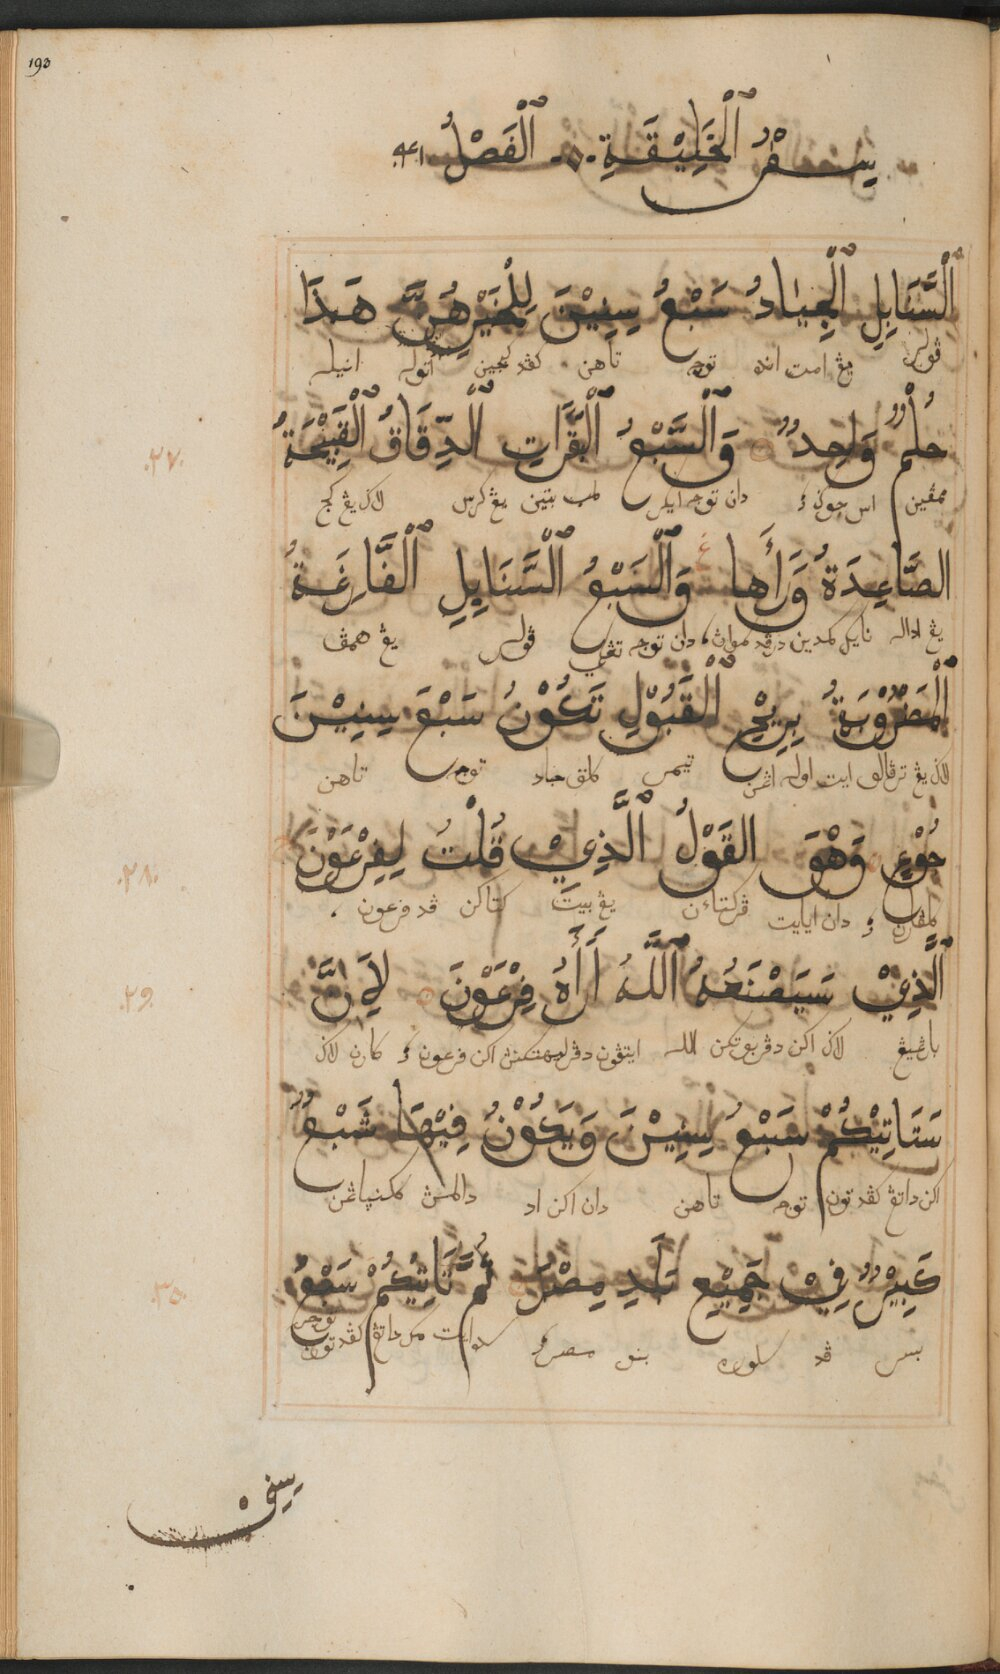 193
سِفْرُ ٱلْخَلِيْقَةِ ٱلْفَصْلُ ٤١
ٱلْسَّنَابِلِ ٱلْجِيَادُ سَبْعُ سِنِيْنَ لِلْخَيْرِ هُرِنَّ هَذَا
ڤولر يڠ امت انده توجه تاهن كڤد انيله
حُلْمٌ وَاحِدٌ وَٱلْسَّبْعُ ٱلْبَقَرَاتِ ٱلْدِّقَاقُ ٱلْقَبِيْحَةُ
٢٧
ممڤين اس دان توجه ايكر لمبو بتين يڠ كرس لاڬ يڠ كجي
الصَّاعِدَةُ وَرَأَها وَٱلْسَبْعُ ٱلْسَّنَابِلِ ٱلْفَّارِغَةُ
يڠ اداله نايك كمدين درڤد دان توجه تڠكي ڤولر يڠ همڤ
ٱلْمَضْرُوْبَةُ بِرِيْحِ ٱلْقَبُوْلِ تَكُوْنُ سَبْعَ سِنِيْنَ
لاڬ يڠ ترڤالو ايت اوله اڠن تيمر جاد توجه تاهن
جُوْعٍ وَهْوَ القَوْلُ ٱلَّذِيْ قُلْتُ لِفِرْعَوْنَ
٢٨
كلڤارن دان ايايت ڤركتاءن يڠ بيت كتاكن ڤد فرعون
ٱلَّذِيْ سَيَصْنَعُهُ ٱللَّهُ أَرَأَهُ فِرْعَوْنَ لِاَنَّ
٢٩
باڠيڠ لاڬ اكن دڤربوتكن الله ايتڤون دڤرليهتكنڽ اكن فرعون كارن لاڬ
سَتَاتِيْكُمْ سَبْعُ سِنِيْنَ وَيَكُوْنُ فِيْهَا شَبْعٌ
اكن داتڠ كڤد تون توجه تاهن دان اكن اد دالمڽ ككنياڠن
كَبِيْرٌ فِيْ جَمِيْعِ بَلَدِ مِصْرَ ثُمَّ تَاتِيْكُمْ سَبْعُ
٣٠
بسر ڤد سلوره بنو مصر سدايت داتڠ كڤد تون توجه
سِنِيْ